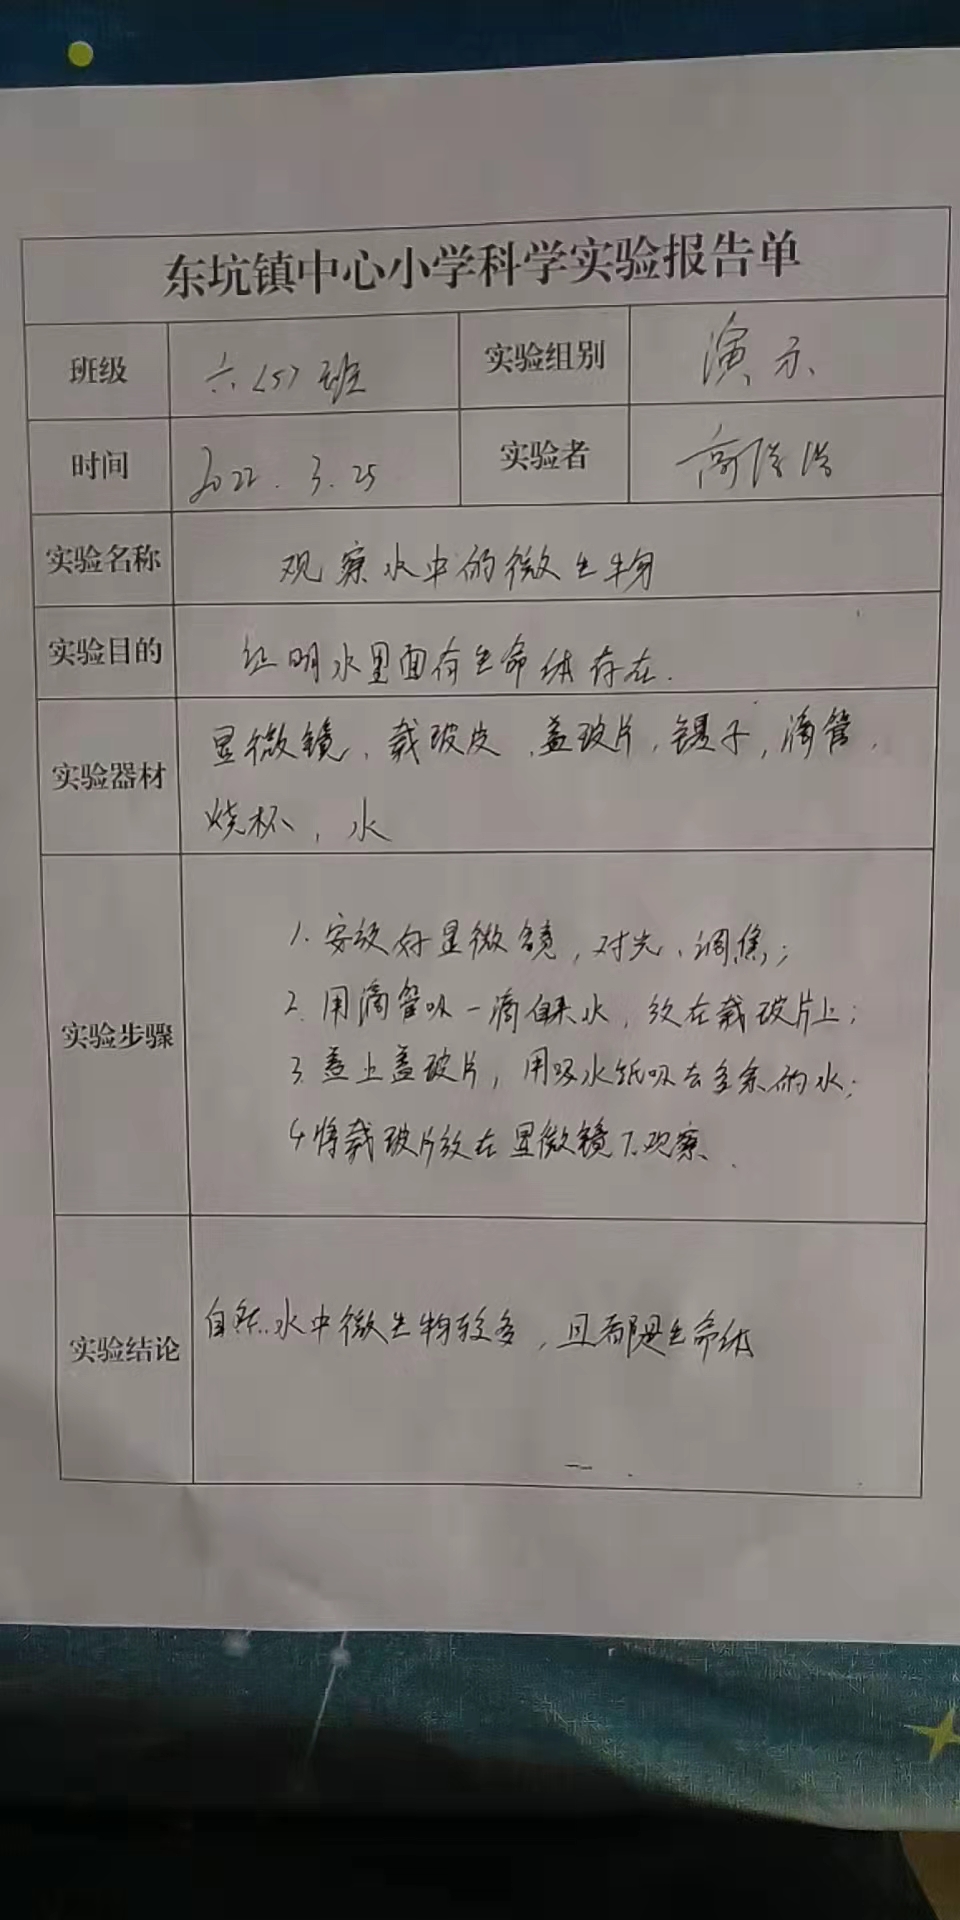 东坑镇中心小学科学实验报告单
班级 六（5）班 实验组别 演示
时间 2022.3.25 实验者 高
实验名称 观察水中的微生物
实验目的 证明水里面有生命体存在.
实验器材 显微镜、载玻皮、盖玻片,镊子,滴管,
烧杯,水
实验步骤
1.安放好显微镜,对光、调焦;
2.用滴管吸一滴自来水,放在载玻片上;
3.盖上盖玻片,用吸水纸吸去多余的水;
4.将载玻片放在显微镜下观察.
实验结论 自然水中微生物较多,且都是生命体